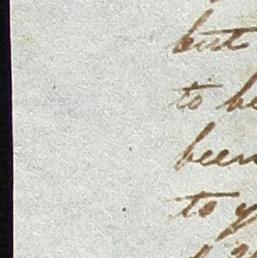 but
to be
been
to y